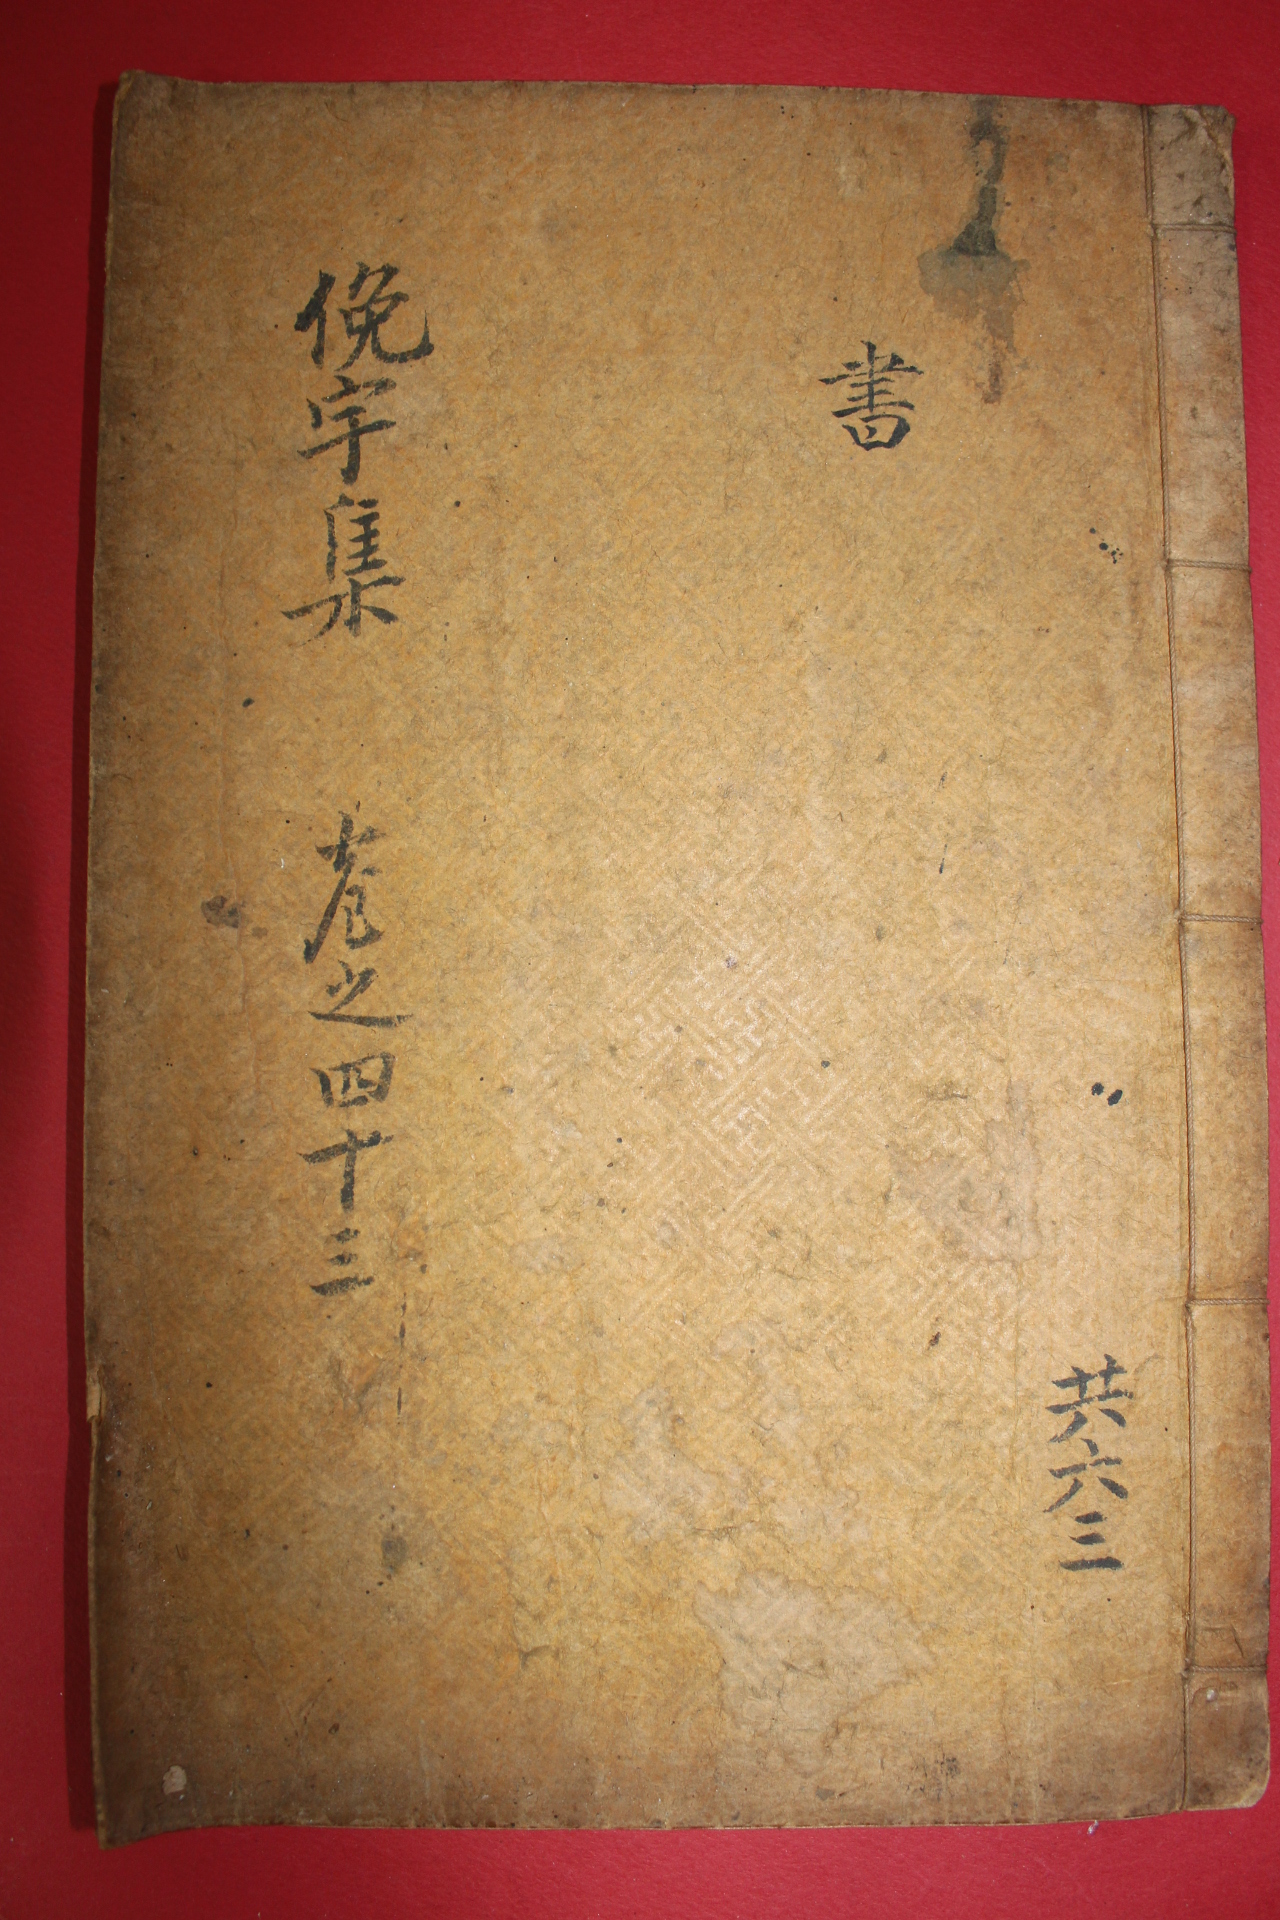 書
共六三
俛宇集 卷之四十三